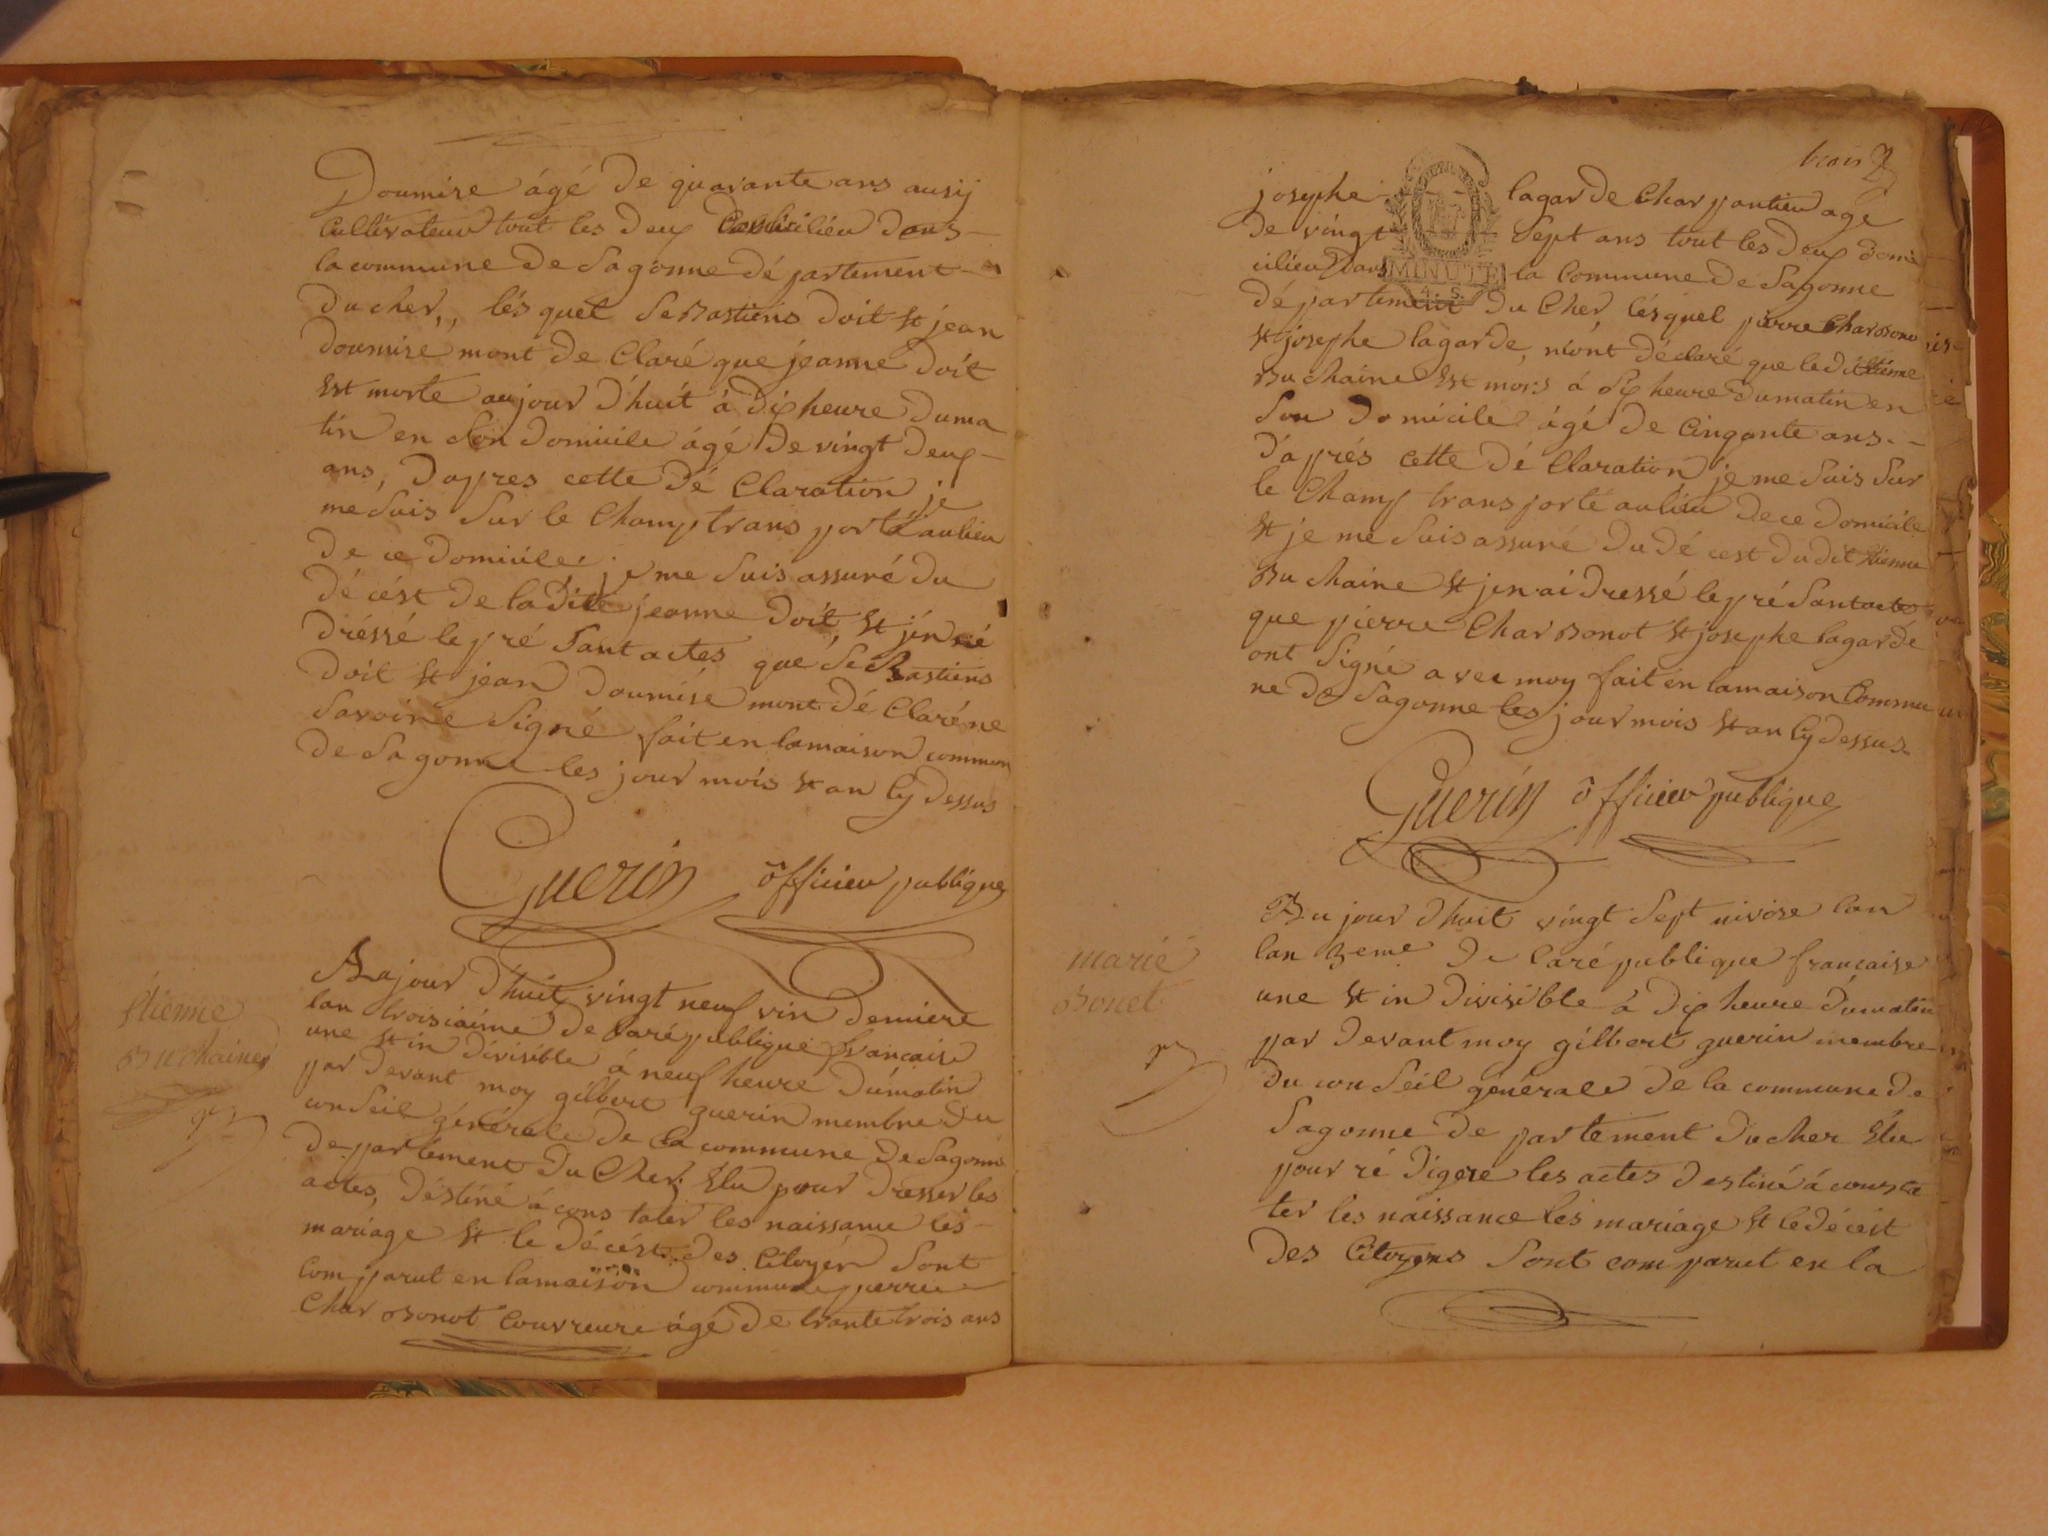 Doumise âgé de quarante ans ausij
Cultivateur tout les deux domicilieu dans
la commune de Sagonne dé partement
du cher,, lésquel Sebastiens doit et jean
doumise mont de Claré que jeanne doit
Est morte aujour d'huit à dix heure duma
tin en Son domicile âgé de vingt deux
ans, dapres cette dé Claration je
me Suis Sur le Champ trans porté aulieu
de ce domicile. je me Suis assuré du
dé cést de ladite jeanne doit, et jén né
dréssé le pré Sant actes que Sebastiens
doit et jean doumise mont dé Claré ne
Savoire Signé fait en lamaison commun
de Sagonne les jour mois et an Cy dessus
Guerin officieu publique
Aujour d'huit vingt neuf vin demiere
lan troisiaime de laré publique francaise
une et in divisible à neuf heure dumatin
par devant moy gilbert guerin membre du
conseil générale de la commune de Sagonne
de partement du Cher. Elu pour dresser les
actes, déstiné à cons tater les naissance les
mariage et le décést des Citoyén Sont
Com parut en lamaison commune pierre
Char Bonot Couvreure âgé de trante trois ans
étienne
Buchaine
trois
josephe lagarde Charpantieu agé
de vingt Sept ans tout les deux domi
cilieu dans la Commune de Sagonne
MINUTE
4. S.
département du Cher lésquel pierre CharBono
et josephe lagarde, m'ont déclaré que ledit étienne
Buchaine Est mors à Six heure dumatin en
Son domicile âgé de Cinqante ans.
d'aprés cette dé Claration je me Suis Sur
le Champ trans porté aulieu de ce domicile
et je me Suis assuré du dé cest dudit étienne
Buchaine et jen ai dressé le pré Sant actes
que pierre CharBonot et josephe lagarde
ont Signé avec moy fait en lamaison Commu
ne de Sagonne les jour mois et an Cy dessus
Guerin officieu publique
Au jour d'huit vingt Sept nivose lan
lan 3eme de laré publique francaise
une et in divisible à dix heure dumatin
par devant moy gilbert guerin membre
du con Seil générale de la commune de
Sagonne de partement du cher Elu
pour ré digere les actes destiné à consta
ter les naissance les mariage et le décést
des Citoyens Sont com parut en la
marié
Bonet